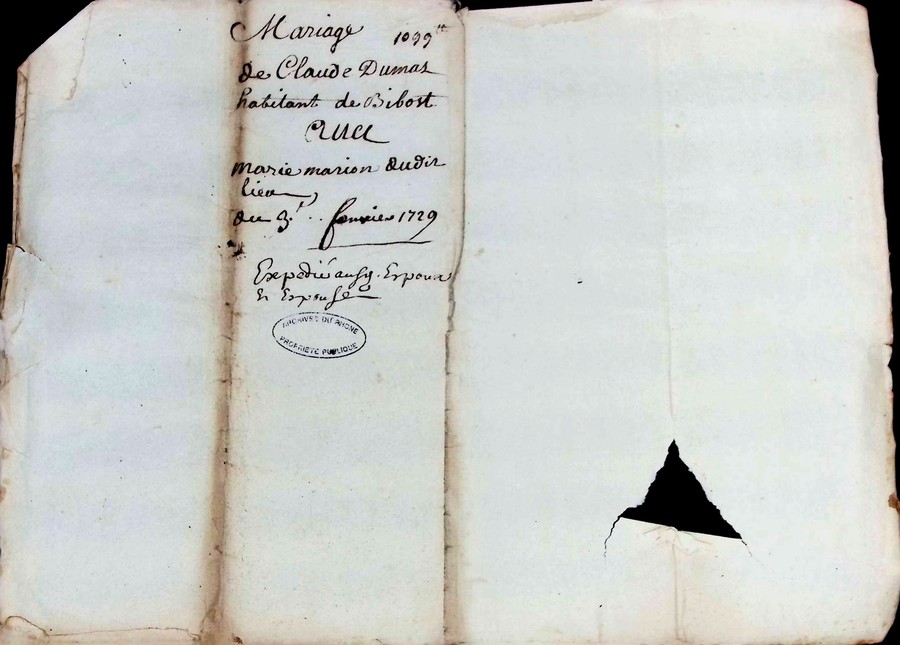 Mariage 1099ᵗᵗ
de Claude Dumas
habitant de Bibost
avec
marie marion dudit
lieu
du 3ᵉ .. fevrier 1729
Expedié au sʳ. Espoux
et Espouse
ARCHIVES DU RHONE
PROPRIETE PUBLIQUE